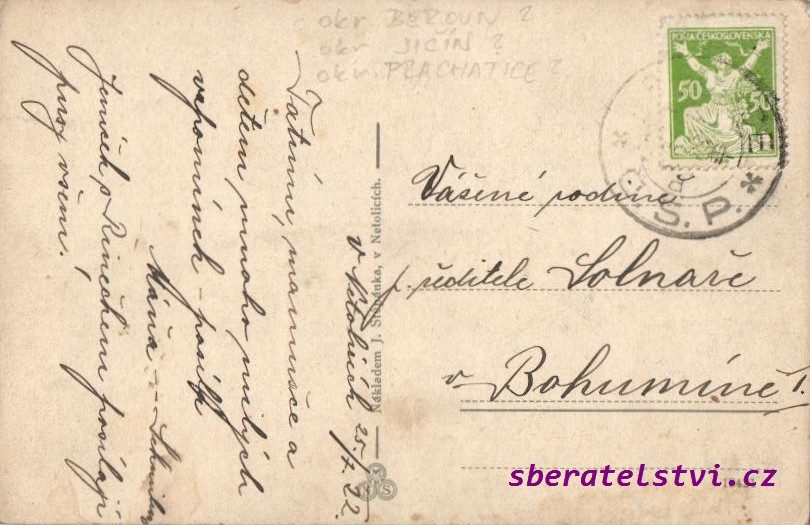 okr. BEROUN ?
okr. JIČÍN ?
okr. PRACHATICE ?
POŠTA ČESKOSLOVENSKA
50 50
Č.S.P.
Vážené rodině
p. ředitele Solnaře
v Bohumíně 1.
Nákladem J. Štěpánka, v Netolicích.
v Netolicích 25/7 22.
Tatínu, mamince a
dětem mnoho milých
vzpomínek – posílá
Máňa –
Jeníček s posílají
pusy všem!
sberatelstvi.cz